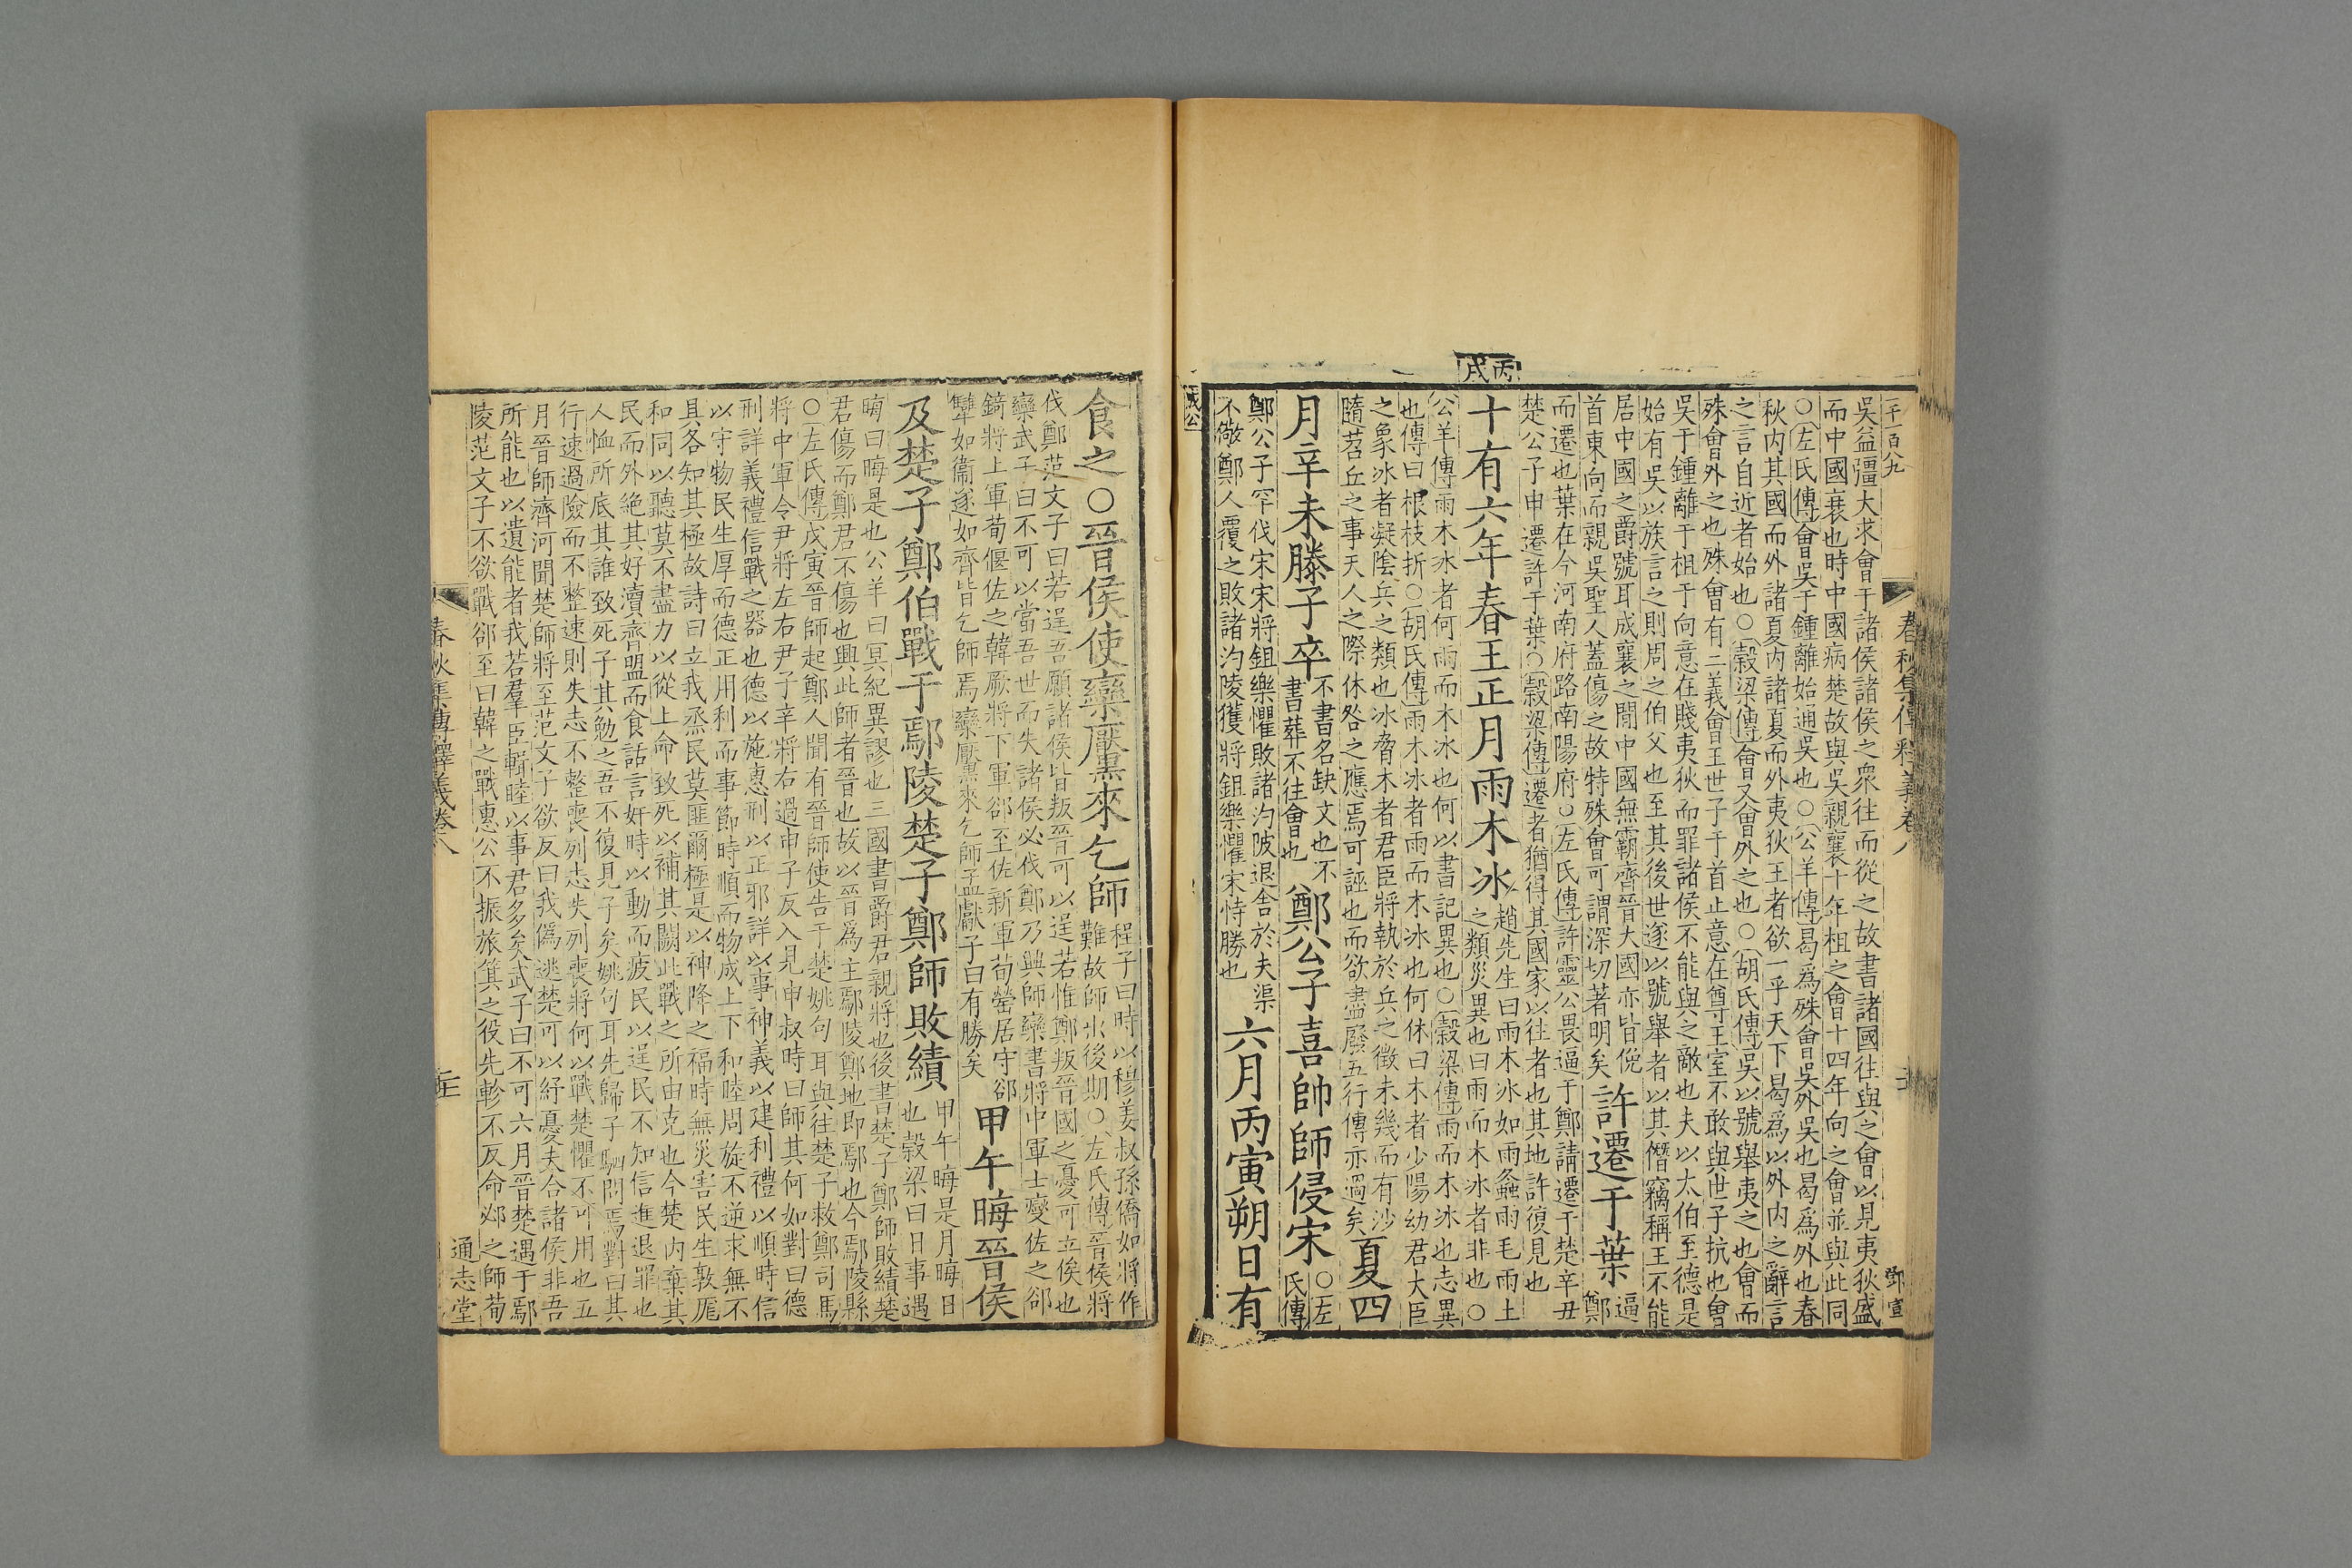 二千一百八九
春秋集傳釋義卷八
鄧宣
吳益彊大求會于諸侯諸侯之衆往而從之故書諸國往與之會以見夷狄盛
而中國衰也時中國病楚故與吳親襄十年柤之會十四年向之會並與此同
○左氏傳會吳于鍾離始通吳也○公羊傳曷爲殊會吳外吳也曷爲外也春
秋內其國而外諸夏內諸夏而外夷狄王者欲一乎天下曷爲以外內之辭言
之言自近者始也○穀梁傳會又會外之也○胡氏傳吳以號舉夷之也會而
殊會外之也殊會有二義會王世子于首止意在尊王室不敢與世子抗也會
吳于鍾離于柤于向意在賤夷狄而罪諸侯不能與之敵也夫以太伯至德是
始有吳以族言之則周之伯父也至其後世遂以號舉者以其僭竊稱王不能
居中國之爵號耳成襄之間中國無霸齊晉大國亦皆俛
首東向而親吳聖人蓋傷之故特殊會可謂深切著明矣
許遷于葉
逼
鄭
而遷也葉在今河南府路南陽府○左氏傳許靈公畏逼于鄭請遷于楚辛丑
楚公子申遷許于葉○穀梁傳遷者猶得其國家以往者也其地許復見也
丙戌
十有六年春王正月雨木冰
趙先生曰雨木冰如雨螽雨毛雨土
之類災異也曰雨而木冰者非也○
公羊傳雨木冰者何雨而木冰也何以書記異也○穀梁傳雨而木冰也志異
也傳曰根枝折○胡氏傳雨木冰者雨而木冰也何休曰木者少陽幼君大臣
之象冰者凝陰兵之類也冰脅木者君臣將執於兵之徵未幾而有沙
隨苕丘之事天人之際休咎之應焉可誣也而欲盡廢五行傳亦過矣
夏四
月辛未滕子卒
不書名缺文也不
書葬不往會也
鄭公子喜帥師侵宋
○左
氏傳
鄭公子罕伐宋宋將鉏樂懼敗諸汋陂退舍於夫渠
不儆鄭人覆之敗諸汋陵獲將鉏樂懼宋恃勝也
六月丙寅朔日有
成公
食之○晉侯使欒黶來乞師
程子曰時以穆姜叔孫僑如將作
難故師出後期○左氏傳晉侯將
伐鄭范文子曰若逞吾願諸侯皆叛晉可以逞若惟鄭叛晉國之憂可立俟也
欒武子曰不可以當吾世而失諸侯必伐鄭乃興師欒書將中軍士燮佐之郤
錡將上軍荀偃佐之韓厥將下軍郤至佐新軍荀罃居守郤
犫如衞遂如齊皆乞師焉欒黶來乞師孟獻子曰有勝矣
甲午晦晉侯
及楚子鄭伯戰于鄢陵楚子鄭師敗績
甲午晦是月晦日
也穀梁曰日事遇
晦曰晦是也公羊曰冥紀異謬也三國書爵君親將也後書楚子鄭師敗績楚
君傷而鄭君不傷也興此師者晉也故以晉爲主鄢陵鄭地即鄢也今鄢陵縣
○左氏傳戊寅晉師起鄭人聞有晉師使告于楚姚句耳與往楚子救鄭司馬
將中軍令尹將左右尹子辛將右過申子反入見申叔時曰師其何如對曰德
刑詳義禮信戰之器也德以施惠刑以正邪詳以事神義以建利禮以順時信
以守物民生厚而德正用利而事節時順而物成上下和睦周旋不逆求無不
具各知其極故詩曰立我烝民莫匪爾極是以神降之福時無災害民生敦厖
和同以聽莫不盡力以從上命致死以補其闕此戰之所由克也今楚內棄其
民而外絶其好瀆齊盟而食話言奸時以動而疲民以逞民不知信進退罪也
人恤所底其誰致死子其勉之吾不復見子矣姚句耳先歸子駟問焉對曰其
行速過險而不整速則失志不整喪列志失列喪將何以戰楚懼不可用也五
月晉師濟河聞楚師將至范文子欲反曰我僞逃楚可以紓憂夫合諸侯非吾
所能也以遺能者我若羣臣輯睦以事君多矣武子曰不可六月晉楚遇于鄢
陵范文子不欲戰郤至曰韓之戰惠公不振旅箕之役先軫不反命邲之師荀
春秋集傳釋義卷八
通志堂